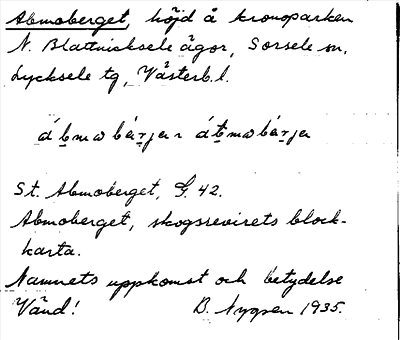 Abmoberget, höjd å kronoparken
N. Blattnicksele ägor, Sorsele sn,
Lycksele tg, Västerb. l.
St. Abmoberget, G. 42.
Abmoberget, skogsrevirets block-
karta.
Namnets uppkomst och betydelse
Vänd! B. Nygren 1935.